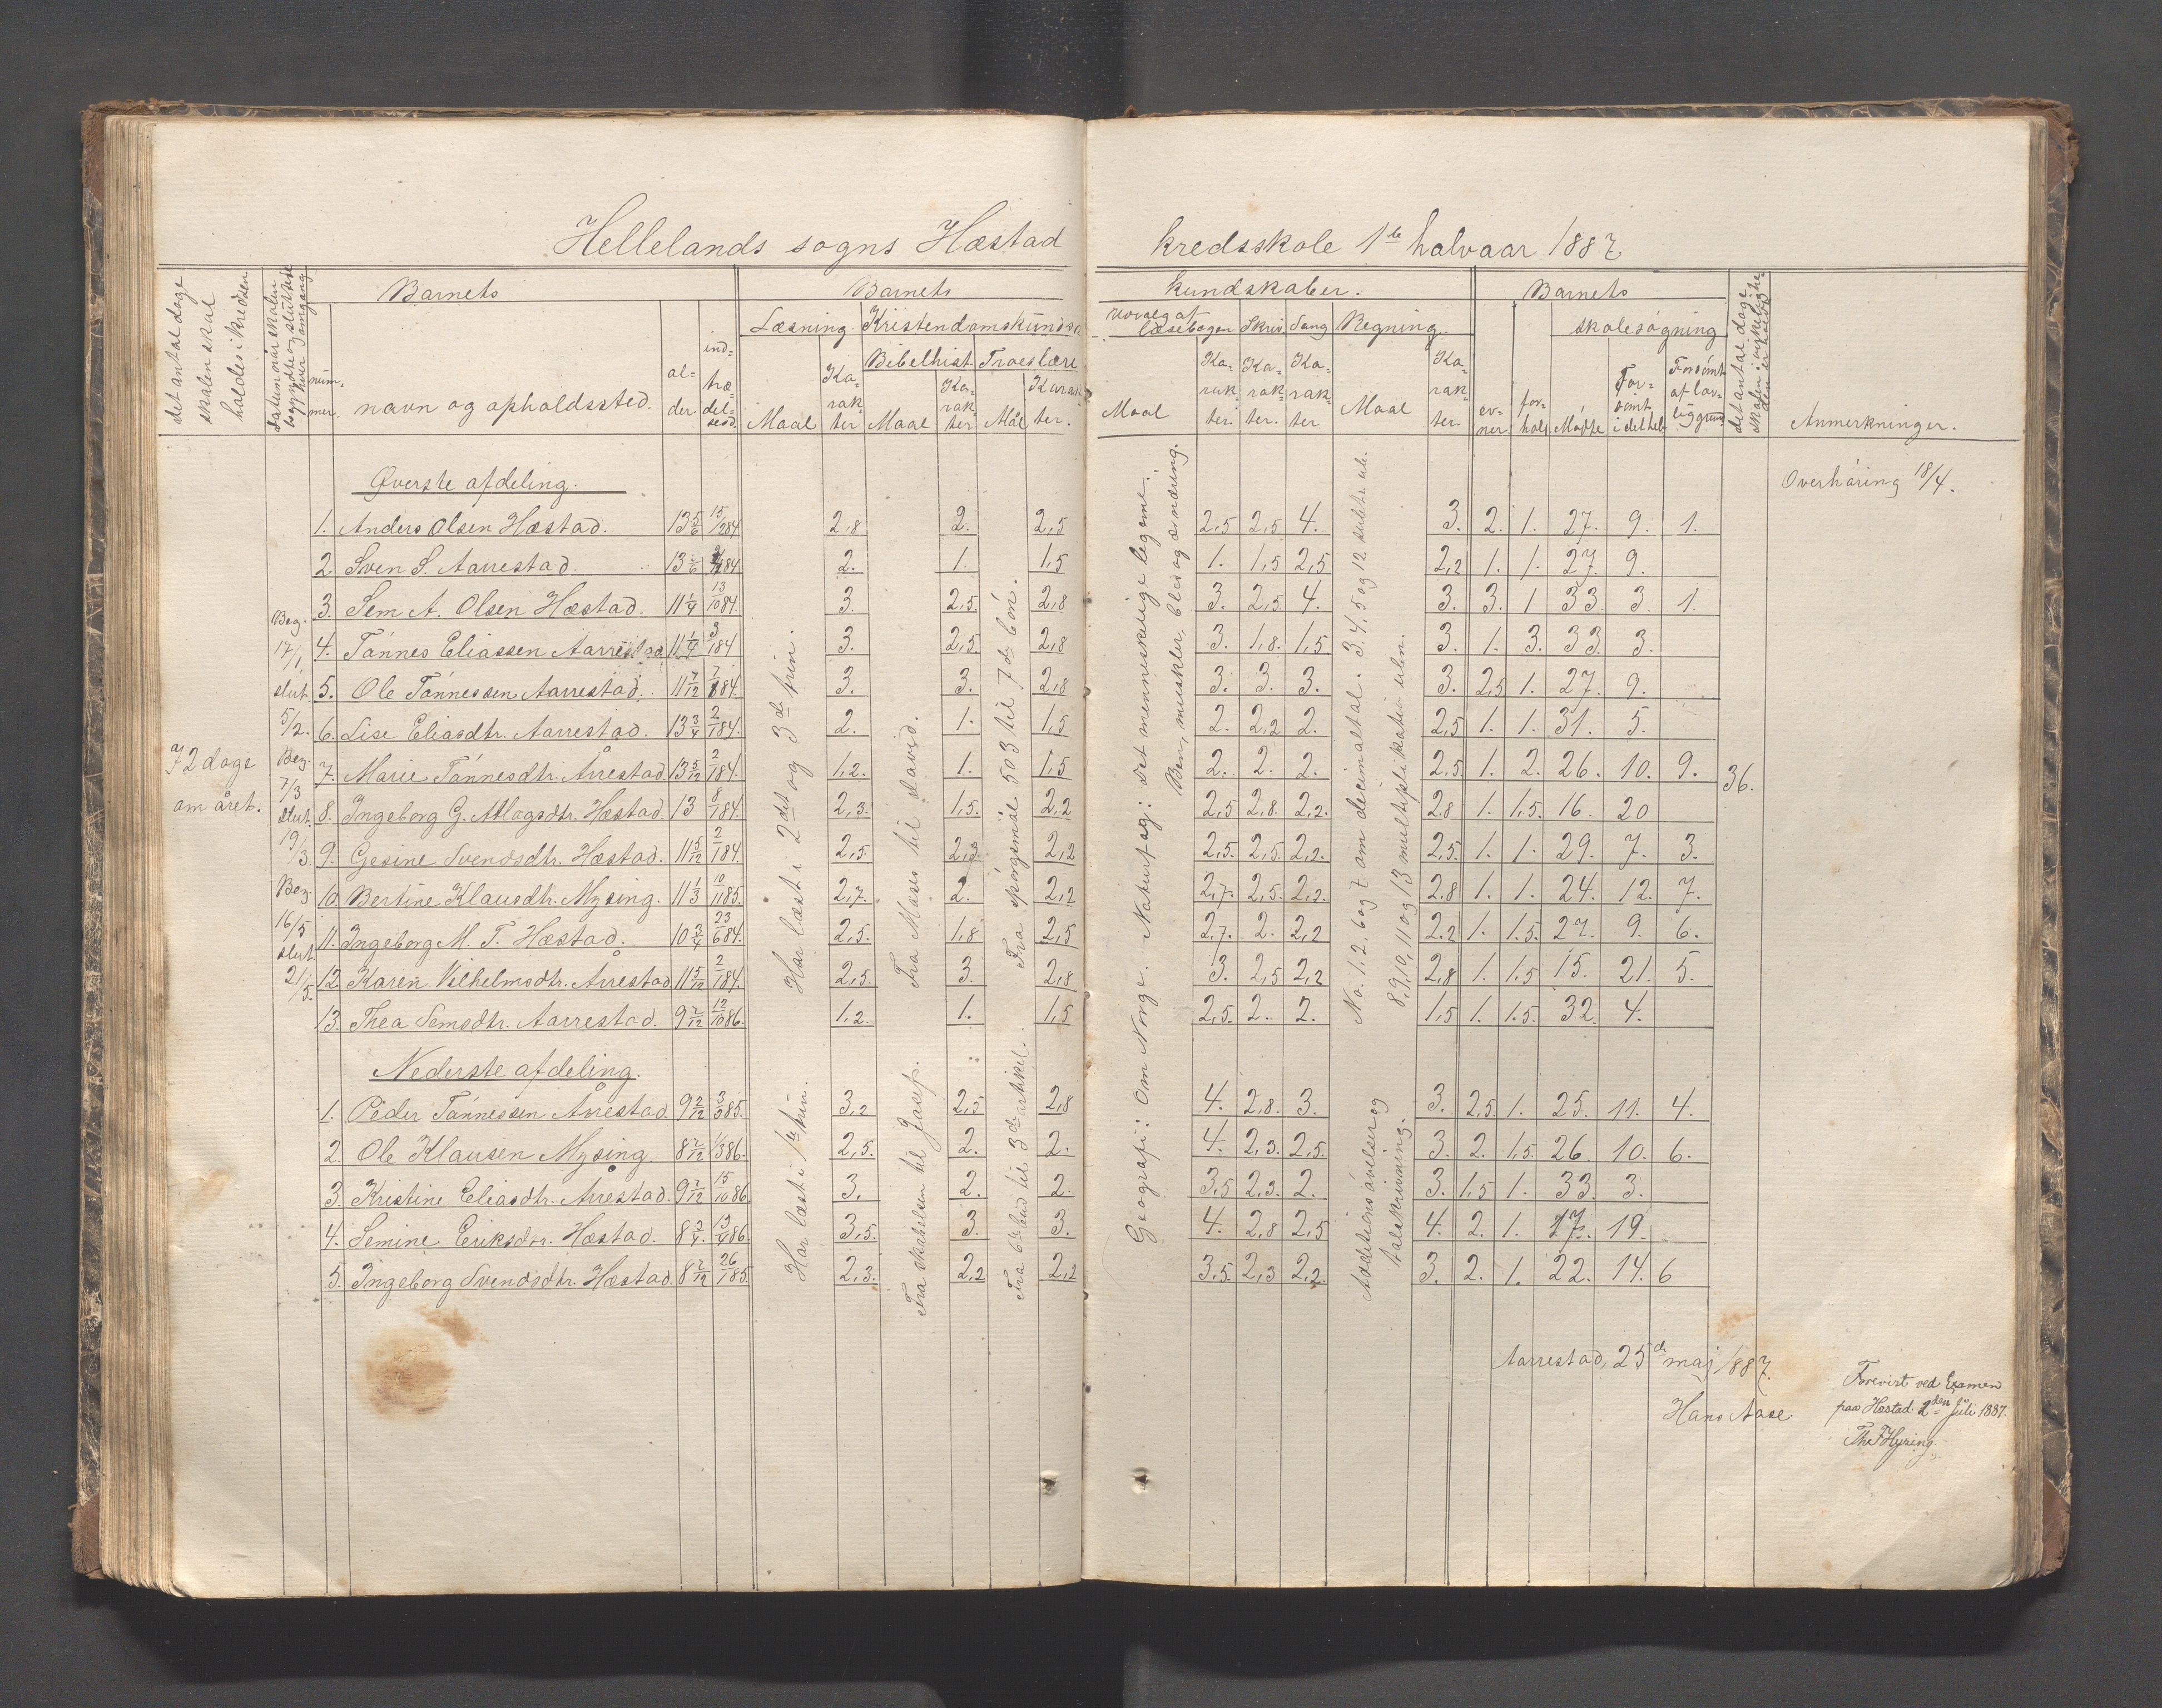 Hellelands sogns Hæstad kredsskole 1ste halvaar 1887
det antal dage skolen skal holdes i kredsen
datum når skolen begyndte og sluttede hver omgang
Barnets
nummer
navn og opholdssted.
alder
indtrædelsesd.
Barnets kundskaber.
Læsning.
Maal
Karakter
Kristendomskundsk.
Bibelhist.
Maal
Karakter
Troeslære
Mål
Karakter.
Udvalg af læsebogen
Maal
Karakter.
Skriv.
Karakter.
Sang
Karakter
Regning.
Maal
Karakter.
Barnets
evner
forhold
skolesøgning
Mødte
Forsømt i det hele
Forsømt af lovlig grund
det antal dage skolen i virkeligheden er holdt
Anmerkninger.
72 dage om året.
Beg. 17/1 slut. 5/2.
Beg. 7/3 slut. 19/3.
Beg. 16/5 slut. 21/5.
36.
Overhøring 18/4.
Øverste afdeling.
1. Anders Olsen Hæstad. 13 5/6 15/1284 2,8 2. 2,5 2,5 2,5 4. 3. 2. 1. 27. 9. 1.
2. Sven S. Aarrestad. 13 84 2. 1. 1,5 1. 1,5 2,5 2,2 1. 1. 27. 9.
3. Sem A. Olsen Hæstad. 11 1/4 13/1084. 3. 2,5. 2,8 3. 2,5. 4. 3. 3. 1 33. 3. 1.
4. Tønnes Eliassen Aarrestad 11 1/4 3/184 3. 2,5 2,8 3. 1,8. 1,5 3. 1. 3. 33. 3.
5. Ole Tønnessen Aarrestad. 11 7/12 7/184. 3. 3. 2,8 3. 3. 3. 3. 2,5 1. 27. 9.
6. Lise Eliasdtr. Aarrestad. 13 3/4 2/184. 2. 1. 1,5 2. 2,2 2. 2,5 1. 1. 31. 5.
7. Marie Tønnesdtr. Årrestad. 13 5/12 2/184. 1,2. 1. 1,5 2. 2. 2. 2,5 1. 2. 26. 10. 9.
8. Ingeborg G. Atlogsdtr. Hæstad. 13 8/184. 2,3. 1,5. 2,2 2,5 2,8 2,2. 2,8 1. 1,5. 16. 20
9. Gesine Svendsdtr. Hæstad. 11 5/12 2/184. 2,5. 2,2 2,5. 2,5. 2,2. 2,5. 1. 1. 29. 7. 3.
10. Bertine Klausdtr. Mysing. 11 1/3 10/1185. 2,7. 2. 2,2 2,7. 2,5. 2,2. 2,8 1. 1. 24. 12. 7.
11. Ingeborg M. T. Hæstad. 10 3/4 23/684. 2,5. 1,8 2,5 2,7. 2. 2,2 2,2 1. 1,5. 27. 9. 6.
12. Karen Vilhelmsdtr. Årrestad 11 5/12 2/184. 2,5. 3. 2,8 3. 2,5 2,2 2,8 1. 1,5 15. 21. 5.
13. Thea Semsdtr. Aarrestad. 9 7/12 12/1086. 1,2. 1. 1,5 2,5. 2. 2. 1,5 1. 1,5. 32. 4.
Har læst i 2det og 3de trin.
Fra Moses til David.
Fra spørgsmål 503 til 7de bøn.
Naturfag: det menneskelige legeme: Ben, muskler, blod og ernæring.
No. 1. 2. 6 og 7 om decimaltal. 3. 4. 5 og 12 subtr. ub. 8, 9, 10, 11 og 13 multiplikation ubn.
Nederste afdeling.
1. Peder Tønnessen Årrestad 9 2/12 3/385. 3,2 2,5 2,8 4. 2,8. 3. 3. 2,5 1. 25. 11. 4.
2. Ole Klausen Mysing. 8 7/12 1/386. 2,5. 2. 2. 4. 2,3. 2,5. 3. 2. 1,5. 26. 10. 6.
3. Kristine Eliasdtr. Årrestad. 9 2/12 15/1086 3. 2. 2. 3,5 2,3. 2. 3. 1,5 1. 33. 3.
4. Semine Eriksdtr. Hæstad. 8 3/4. 13/486. 3,5. 3. 3. 4. 2,8 2,5 4. 2. 1. 17. 19.
5. Ingeborg Svendsdtr. Hæstad. 8 7/12 26/185. 2,3. 2,2 2,2 3,5. 2,3 2,2. 3. 2. 1. 22. 14. 6
Har læst i 1ste trin.
Fra skabelsen til Josef.
Fra 6te bud til 3die artikel.
Geografi: Om Norge.
Additionsøvelser og talskrivning.
Aarrestad, 25de maj 1887.
Hans Aase.
Forevist ved Examen
paa Hæstad 2den Juli 1887.